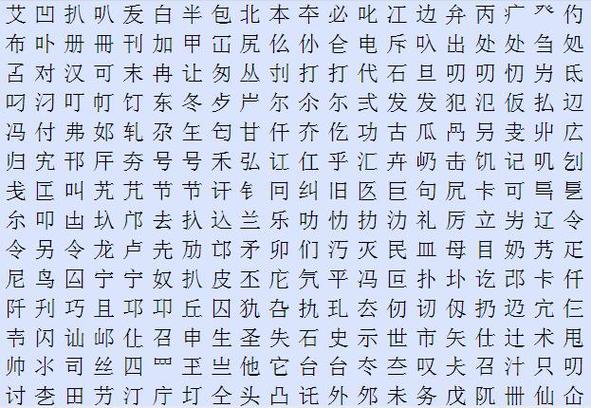 艾凹扒叭叐白半包北本夲必叱冮边弁丙疒癶仢
布卟册冊刊加甲冚尻仫仦仺电斥叺出处处刍処
叾对汉可末冉让匆丛刌打打代石旦叨叨忉屶氐
叼氻叮帄饤东冬歺屵尔尒尔弍发发犯氾仮払辺
冯付弗邚轧尕玍匃甘仟夰仡功古瓜冎另叏丱広
归宄邗厈夯号号禾弘讧仜乎汇卉屷击饥记叽刉
戋匡叫艽艽节节讦钅冋纠旧匛巨句凥卡可
尔叩凷圦邝去扖込兰乐叻忇扐氻礼厉立屴辽令
令另令龙卢先劢邙矛卯们沔灭民皿母目奶艿疋
尼鸟囜宁宁奴扒皮丕庀气平冯回扑圤讫邔卡仟
阡利巧且邛卭丘囚犰厹执玌厺仞切仭扔辸宂仨
芇闪讪邖仩召申生圣失石史示世市矢仕辻术甩
帅氺司丝四罒玊亗他它台台冭夳叹夨召汁只叨
讨夳田艻汀庁圢仝头凸讬外夘未务戊阢卌仙仚